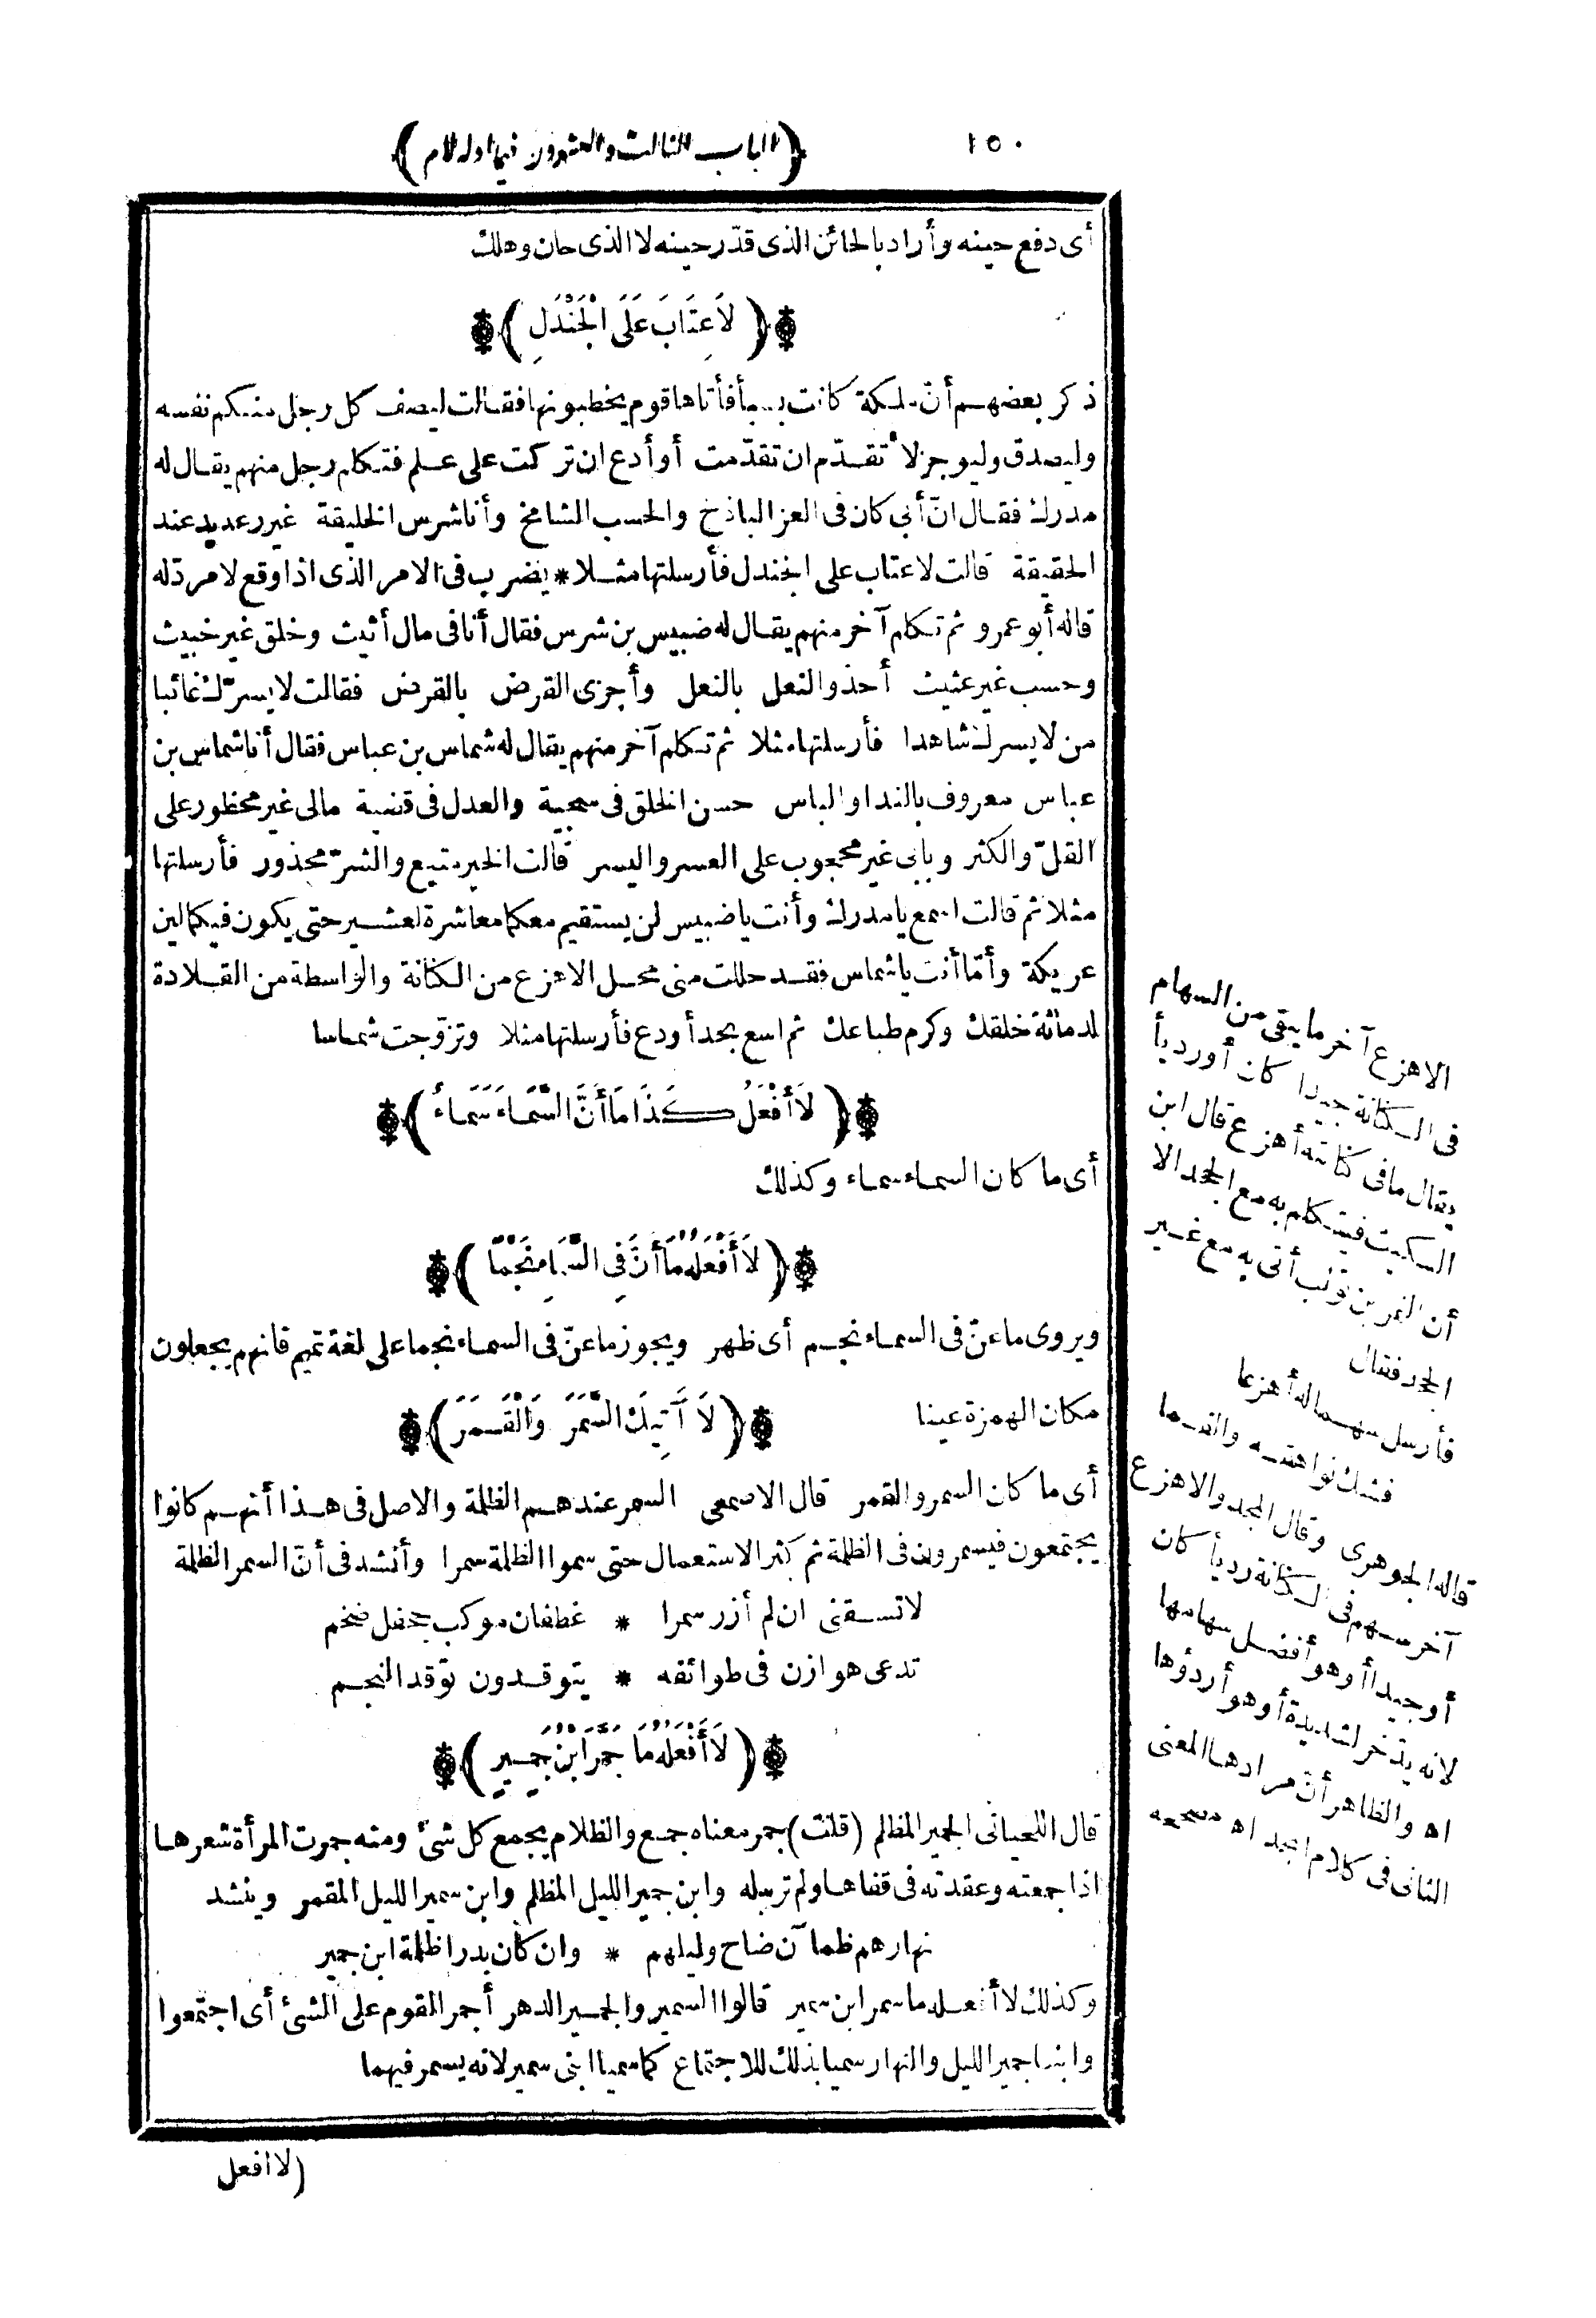 ١٥٠
(الباب الثالث والعشرون فيما اوله لام)
أى دفع حينه وأراد بالحائن الذى قدّر حينه لا الذى حان وهلك
(لَا عِتَابَ عَلَى الْجَنْدَلِ)
ذكر بعضهم أنّ ملكة كانت بسبأ فأتاها قوم يخطبونها فقالت ليصف كل رجل منكم نفسه
وليصدق وليوجز لأتقدّم ان تقدّمت أو أدع ان تركت على علم فتكلم رجل منهم يقال له
مدرك فقال انّ أبى كان فى العز الباذخ والحسب الشامخ وأنا شرس الخليقة غير رعديد عند
الحقيقة قالت لا عتاب على الجندل فأرسلتها مثلا * يضرب فى الامر الذى اذا وقع لا مردّ له
قاله أبو عمرو ثم تكلم آخر منهم يقال له ضبيس بن شرس فقال أنا فى مال أثيث وخلق غير خبيث
وحسب غير عثيث أحذو النعل بالنعل وأجزى القرض بالقرض فقالت لا يسرّك غائبا
من لا يسرك شاهدا فأرسلتها مثلا ثم تكلم آخر منهم يقال له شماس بن عباس فقال أنا شماس بن
عباس معروف بالندا والباس حسن الخلق فى سجية والعدل فى قضية مالى غير محظور على
القلّ والكثر وبابى غير محجوب على العسر واليسر قالت الخير متبع والشرّ محذور فأرسلتها
مثلا ثم قالت اسمع يا مدرك وأنت يا ضبيس لن يستقيم معكما معاشرة لعشير حتى يكون فيكما لين
عريكة وأمّا أنت يا شماس فقد حللت منى محل الاهزع من الكنانة والواسطة من القلادة
لدماثة خلقك وكرم طباعك ثم اسع بجد أودع فأرسلتها مثلا وتزوّجت شماسا
(لَا أَفْعَلُ كَذَا مَا أَنَّ السَّمَاءَ سَمَاءٌ)
أى ما كان السماء سماء وكذلك
(لَا أَفْعَلُهُ مَا أَنَّ فِى السَّمَاءِ نَجْمًا)
ويروى ما عنّ فى السماء نجم أى ظهر ويجوز ما عنّ فى السماء نجما على لغة تميم فانهم يجعلون
مكان الهمزة عينا (لَا آتِيكَ السَّمَرَ وَالْقَمَرَ)
أى ما كان السمر والقمر قال الاصمعى السمر عندهم الظلمة والاصل فى هذا أنهم كانوا
يجتمعون فيسمرون فى الظلمة ثم كثر الاستعمال حتى سموا الظلمة سمرا وأنشد فى أنّ السمر الظلمة
لا تسقنى ان لم أزر سمرا * غطفان موكب جحفل ضخم
تدعى هوازن فى طوائفه * يتوقدون توّقد النجم
(لَا أَفْعَلُهُ مَا جَمَّرَ ابْنُ جَمِيرٍ)
قال اللحيانى الجمير المظلم (قلت) جمر معناه جمع والظلام يجمع كل شئ ومنه جمرت المرأة شعرها
اذا جمعته وعقدته فى قفاها ولم ترسله وابن جمير الليل المظلم وابن سمير الليل المقمر وينشد
نهارهم ظمآن ضاح وليلهم * وان كان بدرا ظلمة ابن جمير
وكذلك لا أفعله ما سمر ابن سمير قالوا السمير والجمير الدهر أجمر القوم على الشئ أى اجتمعوا
وابنا جمير الليل والنهار سميا بذلك للاجتماع كما سميا ابنى سمير لانه يسمر فيهما
(لا افعل
الاهزع آخر ما يبقى من السهام
فى الكنانة جيدا كان أو رديأ
يقال ما فى كنانته أهزع قال ابن
السكيت فيتكلم به مع الجحد الا
أن النمر بن تولب أتى به مع غير
الجحد فقال
فأرسل سهما له أهزعا
فشك نواهقه والفما
قاله الجوهرى وقال المجد والاهزع
آخر سهم فى الكنانة رديأ كان
أو جيدا أو هو أفضل سهامها
لانه يدّخر لشديدة أو هو أردؤها
اه والظاهر أن مرادها المعنى
الثانى فى كلام المجد اه مصححه